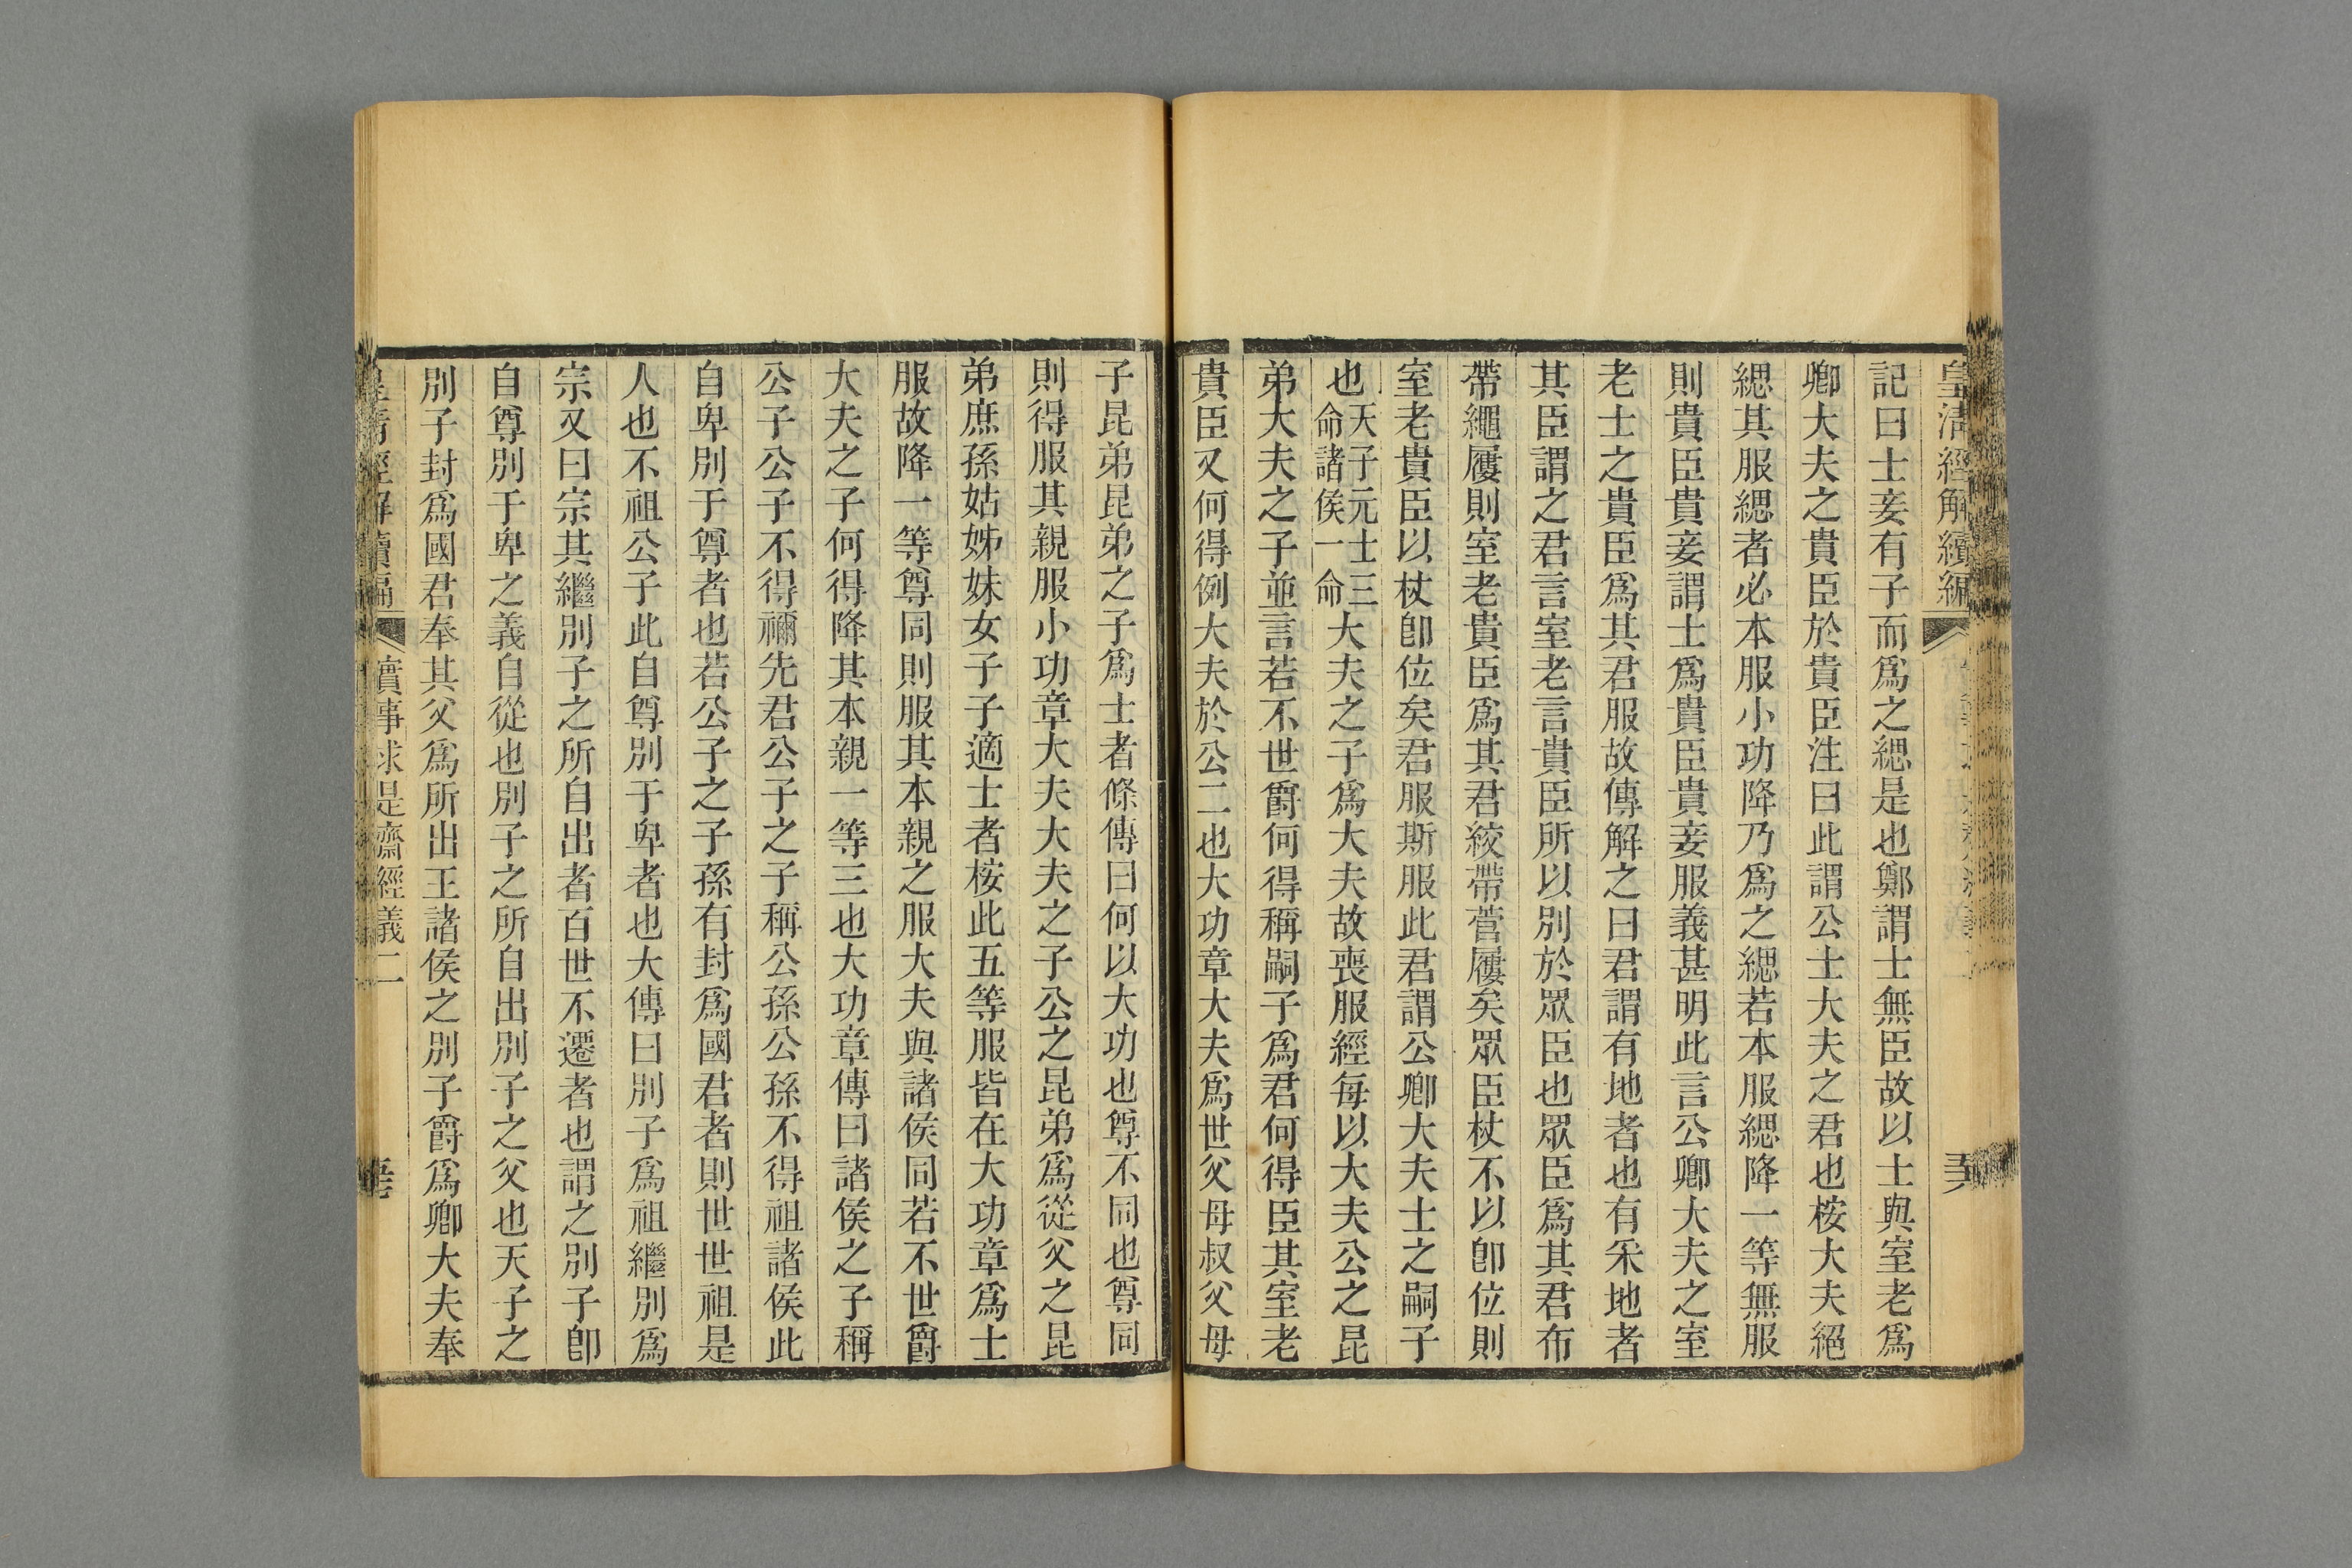 皇清經解續編
五六
記曰士妾有子而爲之緦是也鄭謂士無臣故以士與室老爲
卿大夫之貴臣於貴臣注曰此謂公士大夫之君也桉大夫絕
緦其服緦者必本服小功降乃爲之緦若本服緦降一等無服
則貴臣貴妾謂士爲貴臣貴妾服義甚明此言公卿大夫之室
老士之貴臣爲其君服故傳解之曰君謂有地者也有釆地者
其臣謂之君言室老言貴臣所以別於眾臣也眾臣爲其君布
帶繩屨則室老貴臣爲其君絞帶菅屨矣眾臣杖不以卽位則
室老貴臣以杖卽位矣君服斯服此君謂公卿大夫士之嗣子
也天子元士三命諸侯一命大夫之子爲大夫故喪服經每以大夫公之昆
弟大夫之子並言若不世爵何得稱嗣子爲君何得臣其室老
貴臣又何得例大夫於公二也大功章大夫爲世父母叔父母
子昆弟昆弟之子爲士者條傳曰何以大功也尊不同也尊同
則得服其親服小功章大夫大夫之子公之昆弟爲從父之昆
弟庶孫姑姊妹女子子適士者桉此五等服皆在大功章爲士
服故降一等尊同則服其本親之服大夫與諸侯同若不世爵
大夫之子何得降其本親一等三也大功章傳曰諸侯之子稱
公子公子不得禰先君公子之子稱公孫公孫不得祖諸侯此
自卑別于尊者也若公子之子孫有封爲國君者則世世祖是
人也不祖公子此自尊別于卑者也大傳曰別子爲祖繼別爲
宗又曰宗其繼別子之所自出者百世不遷者也謂之別子卽
自尊別于卑之義自從也別子之所自出別子之父也天子之
別子封爲國君奉其父爲所出王諸侯之別子爵爲卿大夫奉
皇清經解續編
實事求是齋經義二